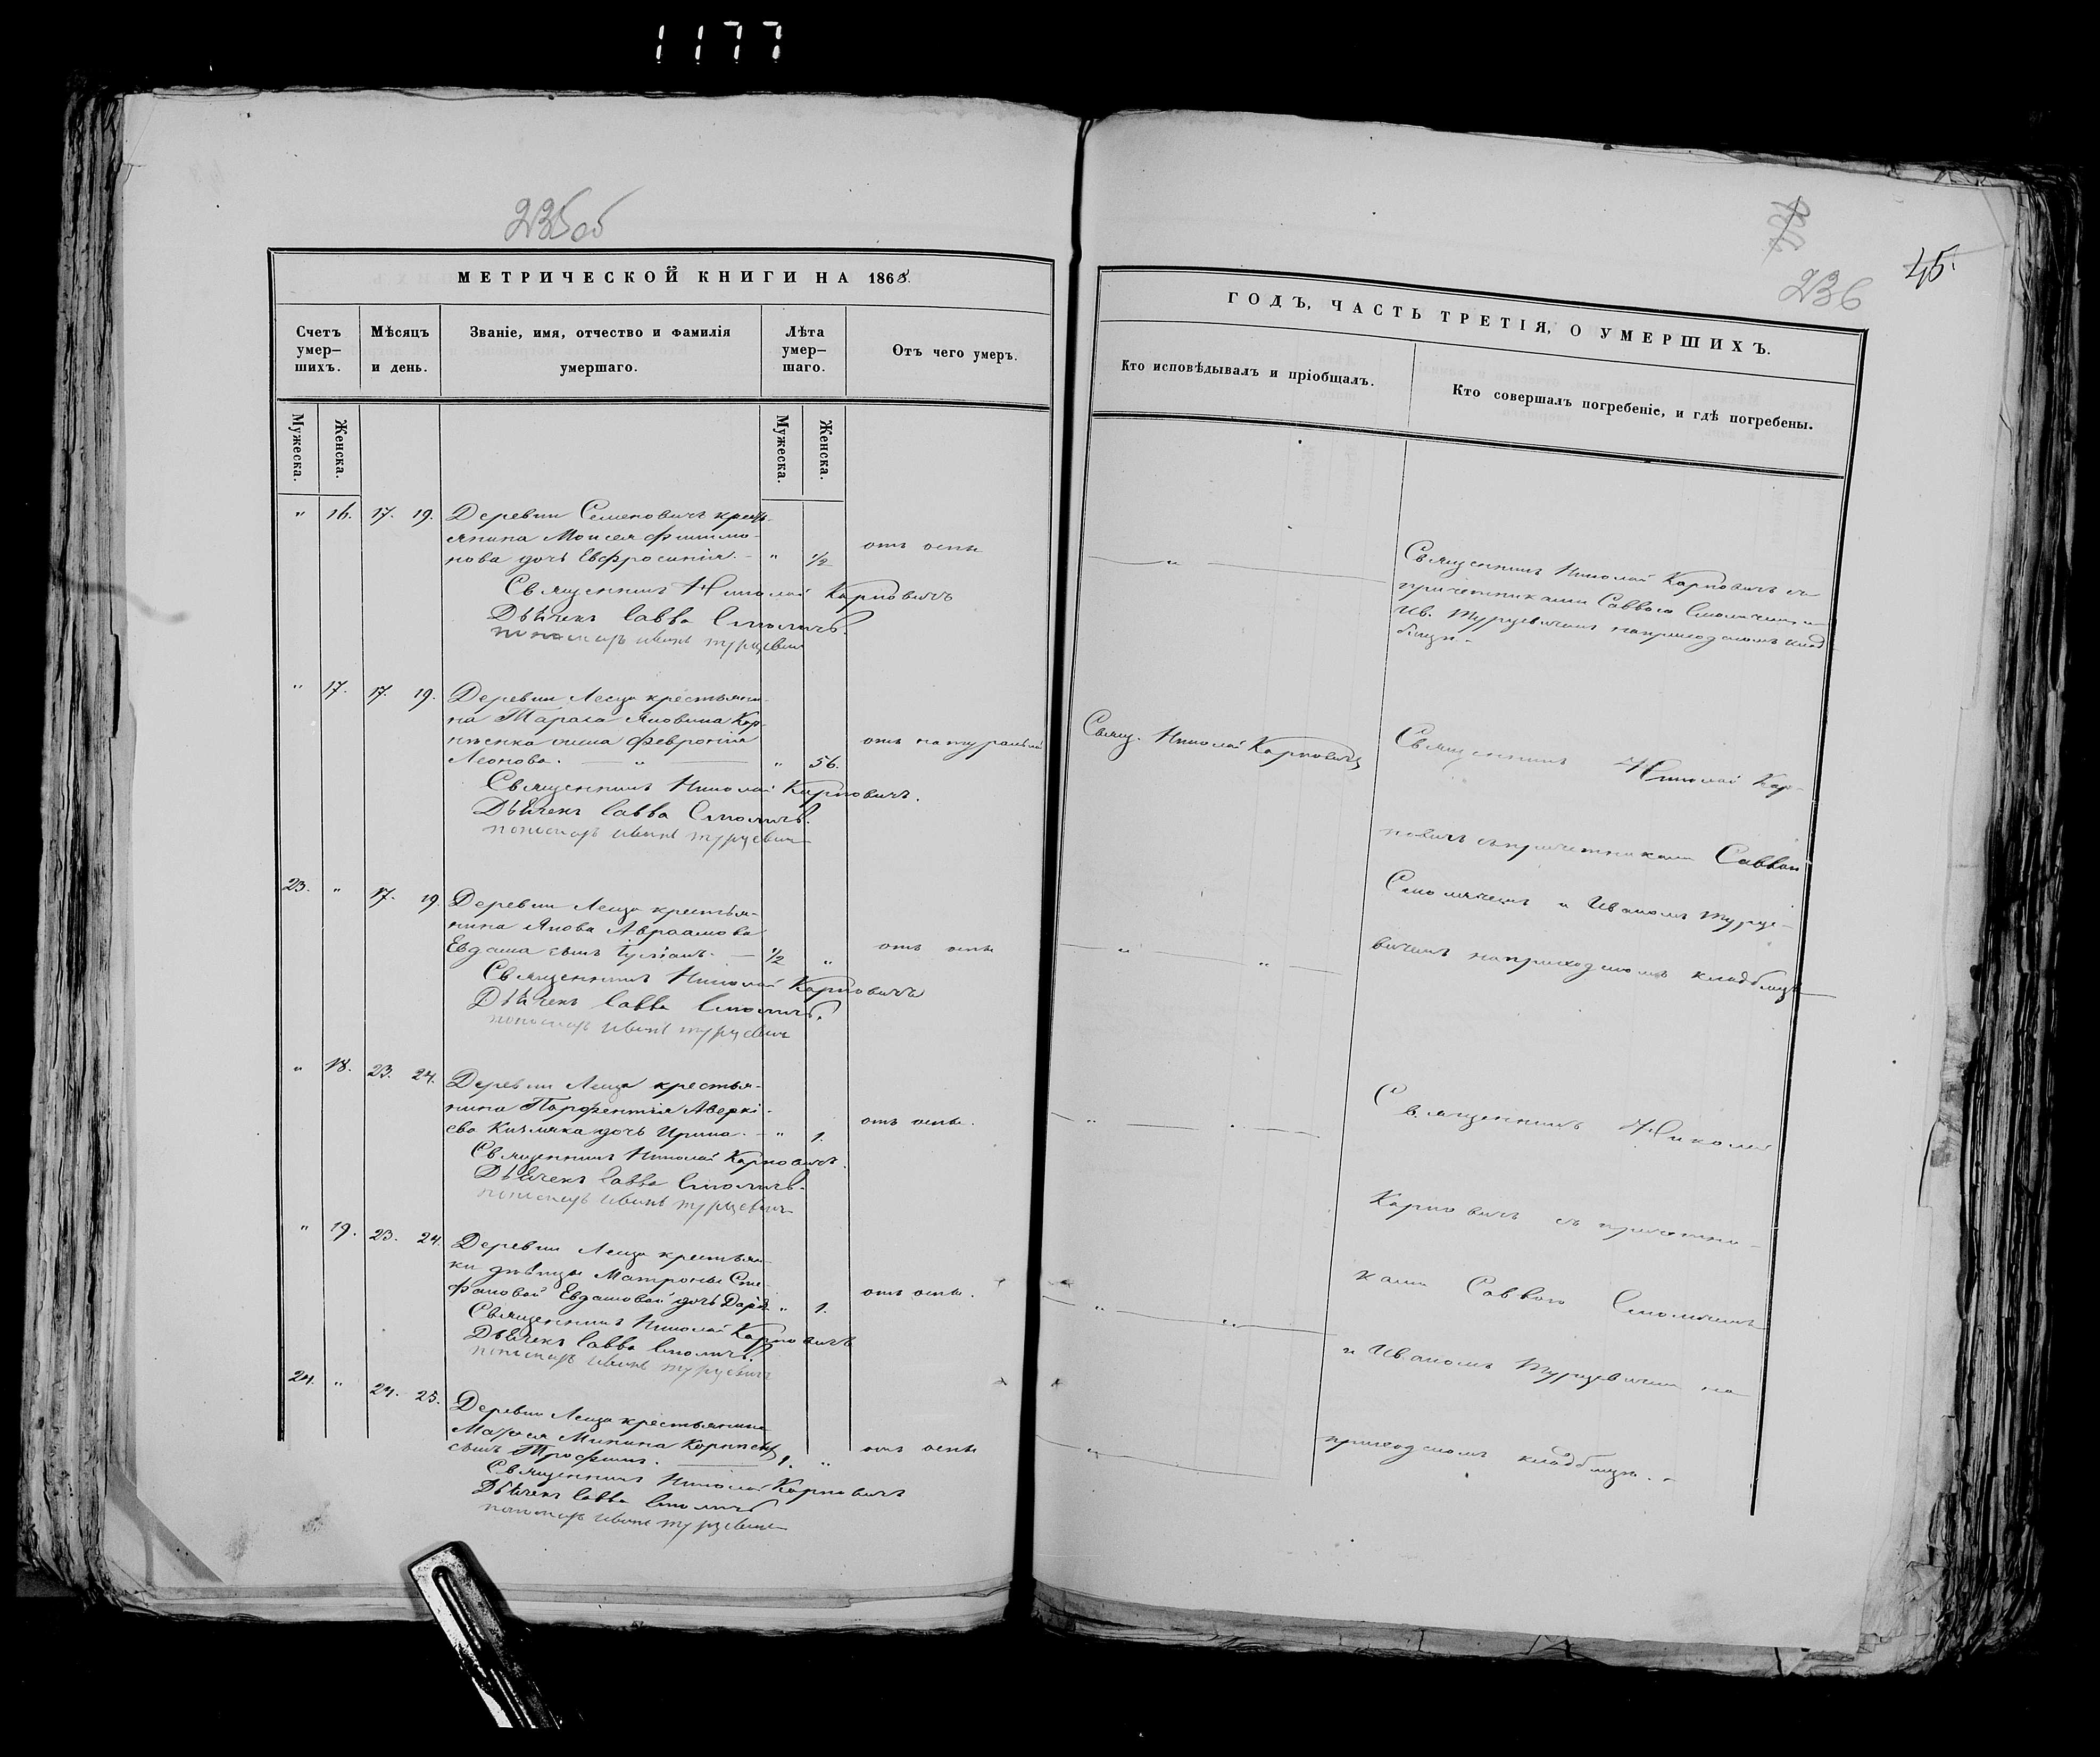 1177
235об
МЕТРИЧЕСКОЙ КНИГИ НА 1868.
Счетъ умер-шихъ.
Мѣсяцъ и день.
Званіе, имя, отчество и фамилія умершаго.
Лѣта умер-шаго.
Отъ чего умеръ.
Мужеска.
Женска.
Мужеска.
Женска.
" 16. 17. 19. Деревни Семеновичъ кресть-
янина Моисея Филимо-
нова дочь Евфросинія. - " 1/2 отъ оспы
Священникъ Николай Карповичъ
Дьячекъ Савва Смоличъ.
пономарь Иванъ Турцевич
" 17. 17. 19. Деревни Леща крестьяни-
на Тараса Яковина Кор-
жена Феврония
Леонова. — " — " 56. отъ натуральной
Священникъ Николай Карповичъ.
Дьячекъ Савва Смоличъ.
пономарь Иванъ Турцевич
23. " 17. 19. Деревни Леща крестья-
нина Якова Авраамова
Евдаша сынъ Іуліанъ. — 1/2 " отъ оспы
Священникъ Николай Карповичъ
Дьячекъ Савва Смоличъ.
пономарь Иванъ Турцевич
" 18. 23. 24. Деревни Леща крестья-
нина Парфентія Аверкі-
ева Кизляка дочь Ирина. - " 1. отъ оспы.
Священникъ Николай Карповичъ.
Дьячекъ Савва Смоличъ.
пономарь Иванъ Турцевич
" 19. 23. 24. Деревни Леща крестьян-
ки дѣвицы Матроны Сте-
фановой Евдашовой дочь Дарья " 1. отъ оспы.
Священникъ Николай Карповичъ
Дьячекъ Савва Смоличъ.
пономарь Иванъ Турцевич
24. " 24. 25. Деревни Леща крестьянина
Матфея Минина
сынъ Трофимъ. — 1. " отъ оспы
Священникъ Николай Карповичъ
Дьячекъ Савва Смоличъ
пономарь Иванъ Турцевич
45.
236
ГОДЪ, ЧАСТЬ ТРЕТІЯ, О УМЕРШИХЪ.
Кто исповѣдывалъ и пріобщалъ.
Кто совершалъ погребеніе, и гдѣ погребены.
— " —
Священникъ Николай Карповичъ съ
причетниками Саввою Смоличемъ и
Ив. Турцевичемъ на приходскомъ клад-
бищѣ.
Свящ. Николай Карповичъ
Священникъ Николай Кар-
повичъ съ причетниками Саввою
Смоличемъ и Иваномъ Турце-
вичемъ на приходскомъ кладбищѣ
— " — " —
Священникъ Николай
Карповичъ съ причетни-
ками Саввою Смоличемъ
и Иваномъ Турцевичемъ на
приходскомъ кладбищѣ.